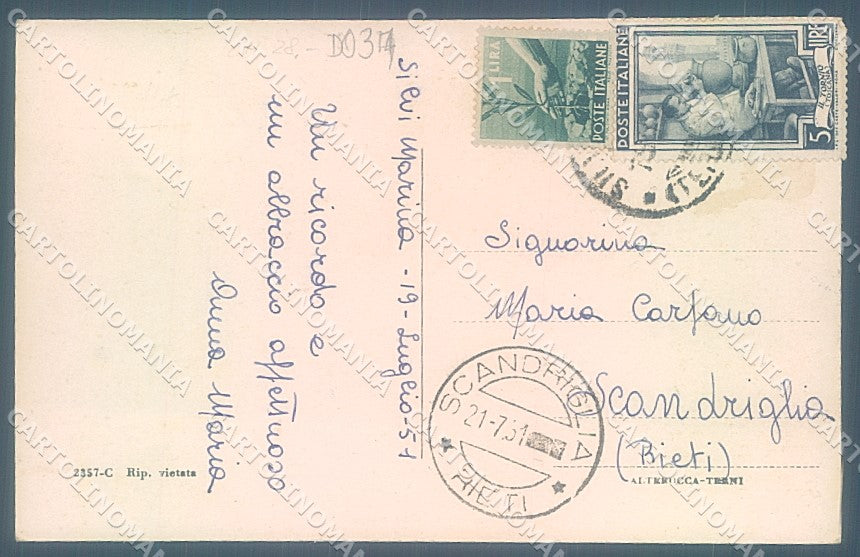 28.- D034
Silvi Marina - 19 - Luglio - 51
Un ricordo e
un abbraccio affettuoso
Anna Maria
1 LIRA
POSTE ITALIANE
POSTE ITALIANE
5 LIRE
IL VASAIO
Signorina
Maria Carfano
Scandriglia
(Rieti)
SCANDRIGLIA
21-7.51
RIETI
2357-C Rip. vietata
ALTEROCCA-TERNI
CARTOLINOMANIA